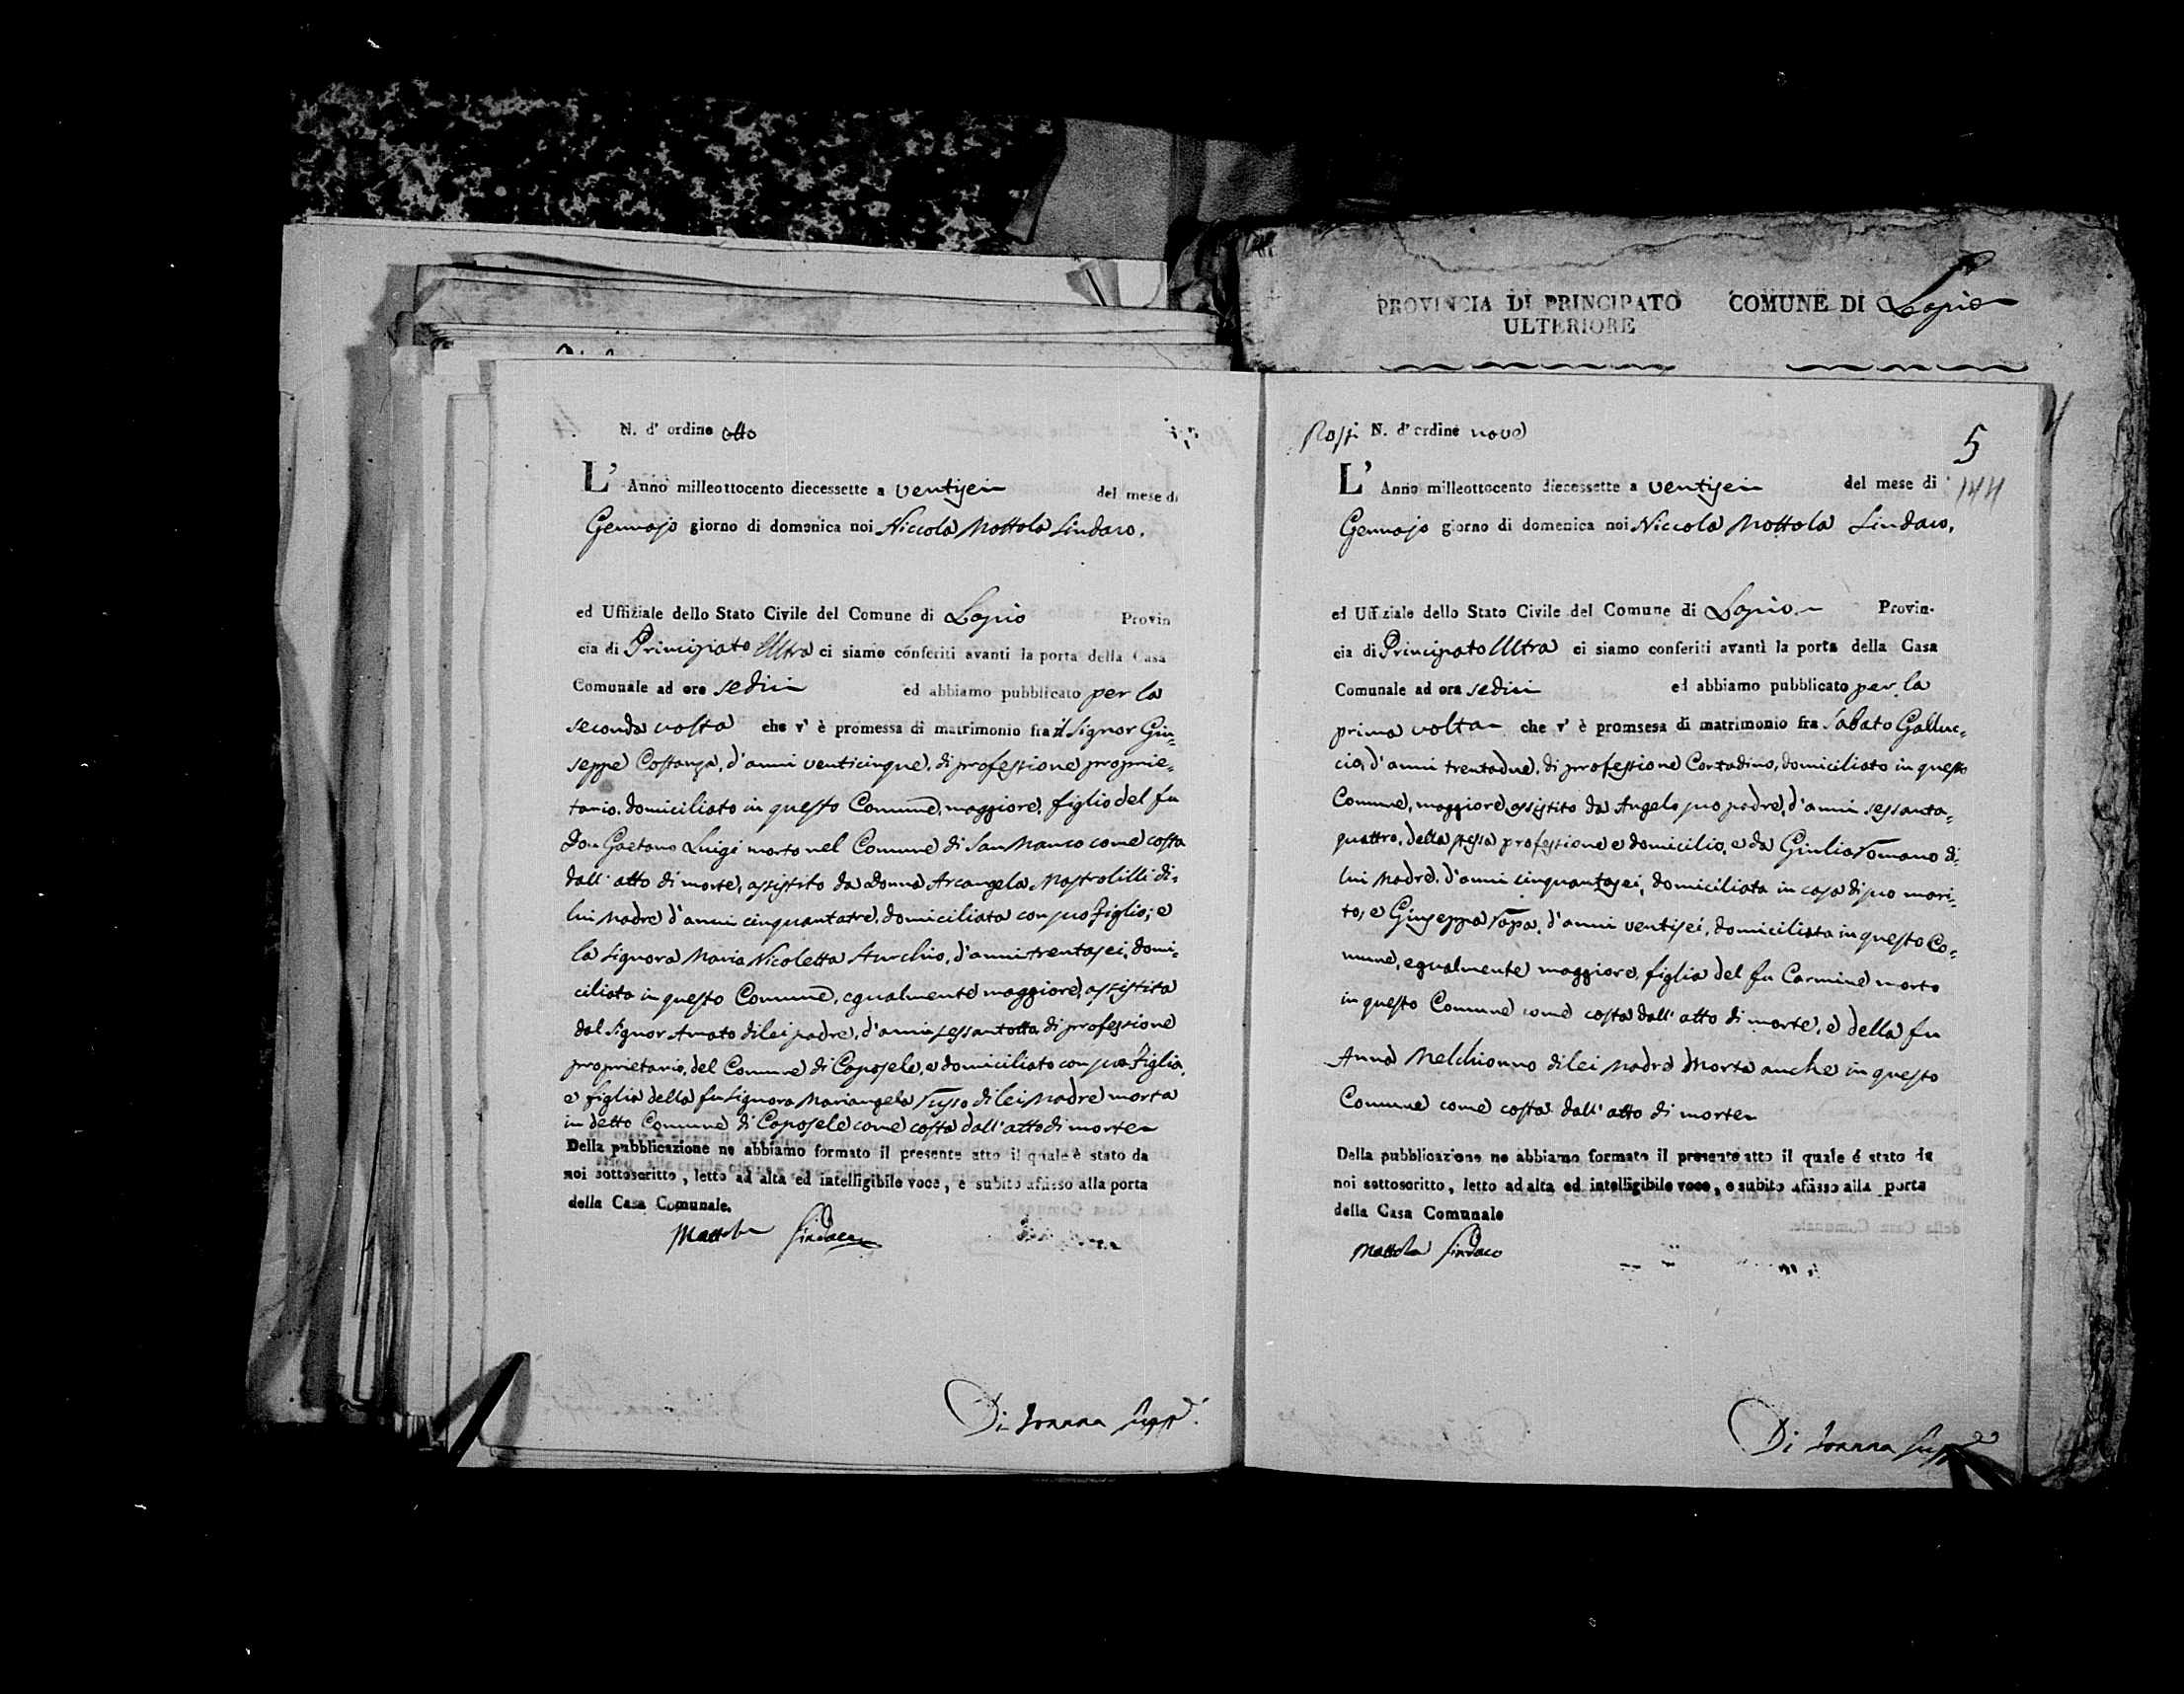 PROVINCIA DI PRINCIPATO ULTERIORE
COMUNE DI Lapio
N. d' ordine otto
L' Anno milleottocento diecessette a ventisei del mese di
Gennajo giorno di domenica noi Niccola Mottola Sindaco.
ed Uffiziale dello Stato Civile del Comune di Lapio Provin
cia di Principato Ultra ci siamo conferiti avanti la porta della Casa
Comunale ad ore sedici ed abbiamo pubblicato per la
seconda volta che v' è promessa di matrimonio fra il Signor Giu=
seppe Costanza, d'anni venticinque, di professione proprie=
tario, domiciliato in questo Comune, maggiore, figlio del fu
Don Gaetano Luigi morto nel Comune di San Manco come costa
dall' atto di morte, assistito da Donna Arcangela Mastrolilli di=
lui Madre d'anni cinquantatre, domiciliata con suo figlio; e
la Signora Maria Nicoletta Sturchio, d'anni trentasei, domi=
ciliata in questo Comune, egualmente maggiore, assistita
dal Signor Amato di lei padre, d'anni sessantotto di professione
proprietario, del Comune di Caposele, e domiciliato con sua figlia,
e figlia della fu Signora Mariangela Russo di lei Madre morta
in detto Comune di Caposele come costa dall' atto di morte
Della pubblicazione ne abbiamo formato il presente atto il quale è stato da
noi sottoscritto, letto ad alta ed intelligibile voce, e subito afisso alla porta
della Casa Comunale.
Mottola Sindaco
Di Ioanna Supp.
N. d' ordine nove
5
144
L' Anno milleottocento diecessette a ventisei del mese di
Gennajo giorno di domenica noi Niccola Mottola Sindaco,
ed Uffiziale dello Stato Civile del Comune di Lapio Provin-
cia di Principato Ultra ci siamo conferiti avanti la porta della Casa
Comunale ad ora sedici ed abbiamo pubblicato per la
prima volta che v' è promsesa di matrimonio fra Sabato Galluc=
cio, d'anni trentadue, di professione Contadino, domiciliato in questo
Comune, maggiore, assistito da Angelo suo padre, d'anni sessanta=
quattro, della stessa professione e domicilio, e da Giulia Romano di=
lui Madre, d'anni cinquantasei, domiciliata in casa di suo mari=
to; e Giuseppa Papa, d'anni ventisei, domiciliata in questo Co=
mune, egualmente maggiore, figlia del fu Carmine morto
in questo Comune come costa dall' atto di morte, e della fu
Anna Melchionno di lei Madre Morta anche in questo
Comune come costa dall' atto di morte
Della pubblicazione ne abbiamo formato il presente atto il quale é stato da
noi sottoscritto, letto ad alta ed intelligibile voce, e subito afisso alla porta
della Casa Comunale
Mottola Sindaco
Di Ioanna Supp.